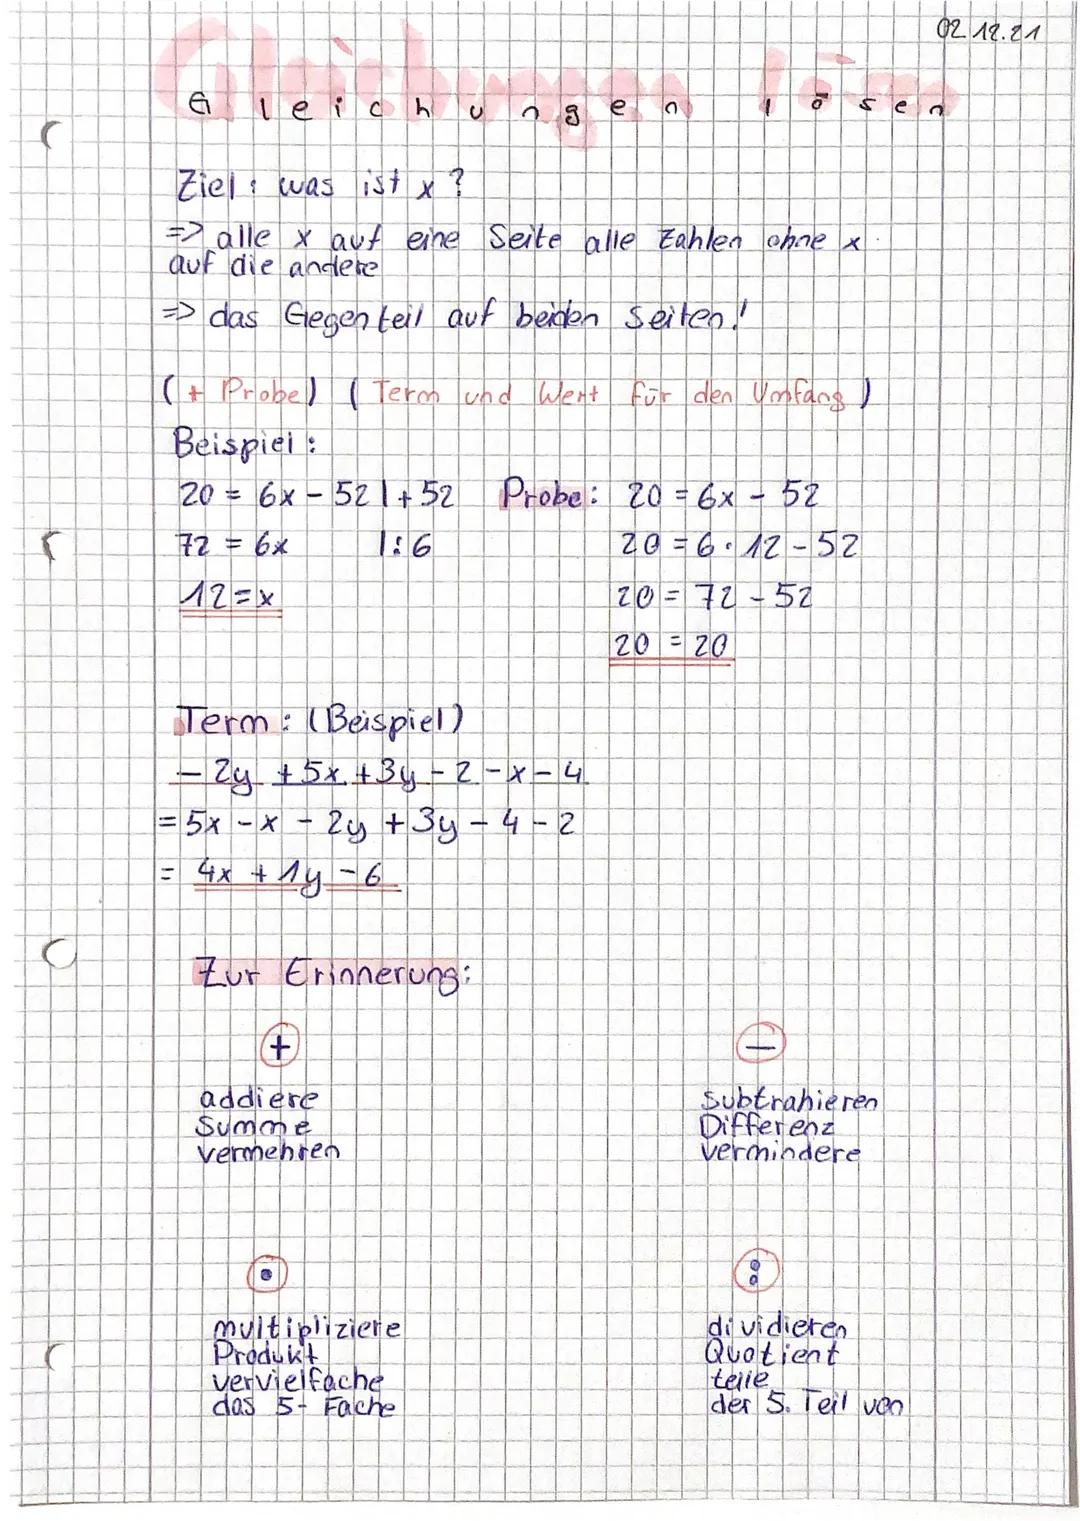 02.12.21
Gleichungen lösen
Ziel: was ist x?
=> alle x auf eine Seite alle Zahlen ohne x
auf die andere
=> das Gegenteil auf beiden Seiten!
(+ Probe) (Term und Wert für den Umfang)
Beispiel:
20 = 6x - 52 | + 52 Probe: 20 = 6x - 52
72 = 6x | : 6 20 = 6 · 12 - 52
12 = x 20 = 72 - 52
20 = 20
Term: (Beispiel)
- 2y + 5x + 3y - 2 - x - 4
= 5x - x - 2y + 3y - 4 - 2
= 4x + 1y - 6
Zur Erinnerung:
+ −
addiere subtrahieren
Summe Differenz
vermehren vermindere
• :
multipliziere dividieren
Produkt Quotient
vervielfache teile
das 5-Fache der 5. Teil von